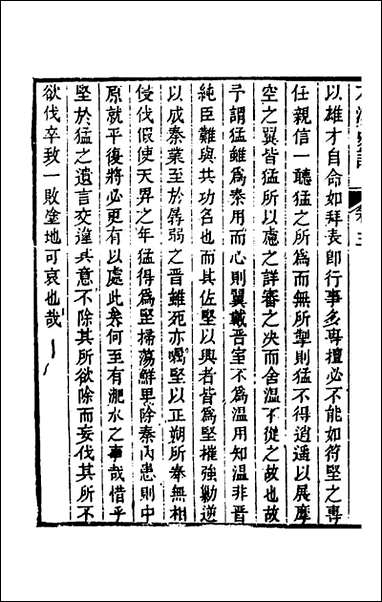 以雄才自命如拜表卽行事多專擅必不能如符堅之專
任親信一聽猛之所爲而無所掣則猛不得逍遙以展摩
空之翼皆猛所以慮之詳審之決而舍溫不從之故也故
予謂猛雖爲秦用而心則翼戴晉室不爲溫用知溫非晉
純臣難與共功名也而其佐堅以興者皆爲堅摧強勦逆
以成秦業至於孱弱之晉雖死亦囑堅以正朔所奉無相
侵伐假使天畀之年猛得爲堅掃蕩鮮卑除秦內患則中
原就平後將必更有以處此矣何至有淝水之事哉惜乎
堅於猛之遺言交違其意不除其所欲除而妄伐其所不
欲伐卒致一敗塗地可哀也哉